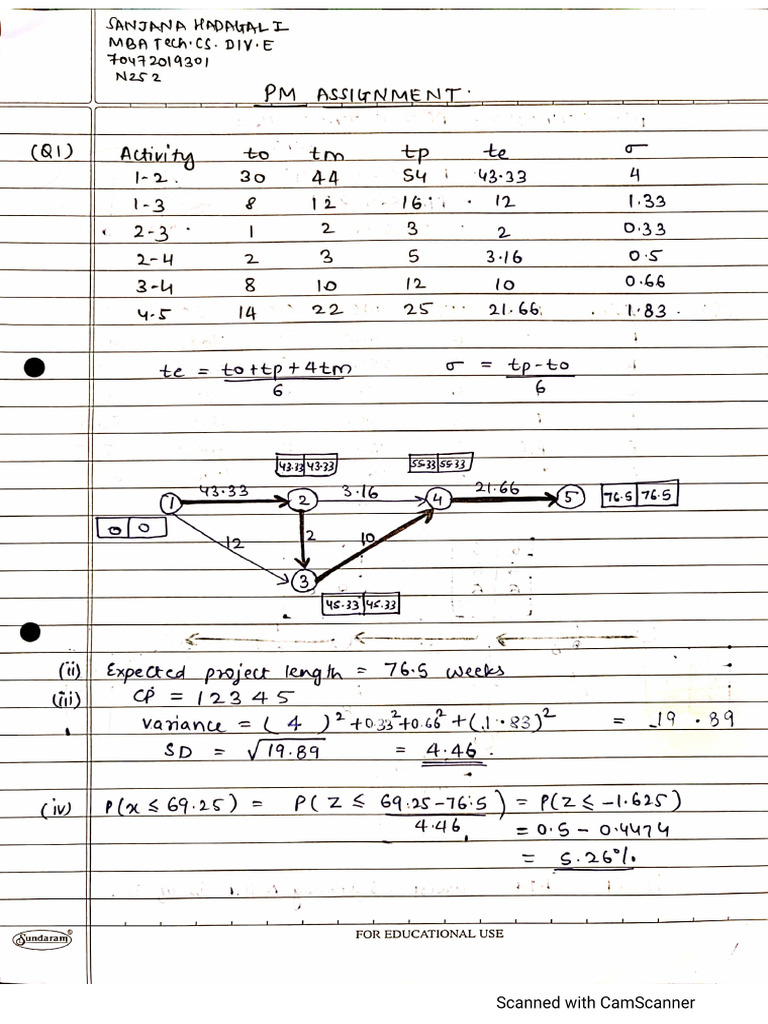 SANJANA HADAGALI
MBA Tech. CS. DIV. E
70472019301
N252
PM ASSIGNMENT.
(Q1) Activity to tm tp te σ
1-2 30 44 54 43.33 4
1-3 8 12 16 12 1.33
2-3 1 2 3 2 0.33
2-4 2 3 5 3.16 0.5
3-4 8 10 12 10 0.66
4-5 14 22 25 21.66 1.83
te = to+tp+4tm / 6 σ = tp-to / 6
43.33 43.33 55.33 55.33
43.33 3.16 21.66
1 2 4 5 76.5 76.5
0 0
12 2 10
3
45.33 45.33
(ii) Expected project length = 76.5 weeks
(iii) CP = 1 2 3 4 5
Variance = (4)² + 0.33² + 0.66² + (1.83)² = 19.89
SD = √19.89 = 4.46.
(iv) P(x ≤ 69.25) = P(Z ≤ 69.25-76.5 / 4.46) = P(Z ≤ -1.625)
= 0.5 - 0.4474
= 5.26%
Sundaram®
FOR EDUCATIONAL USE
Scanned with CamScanner